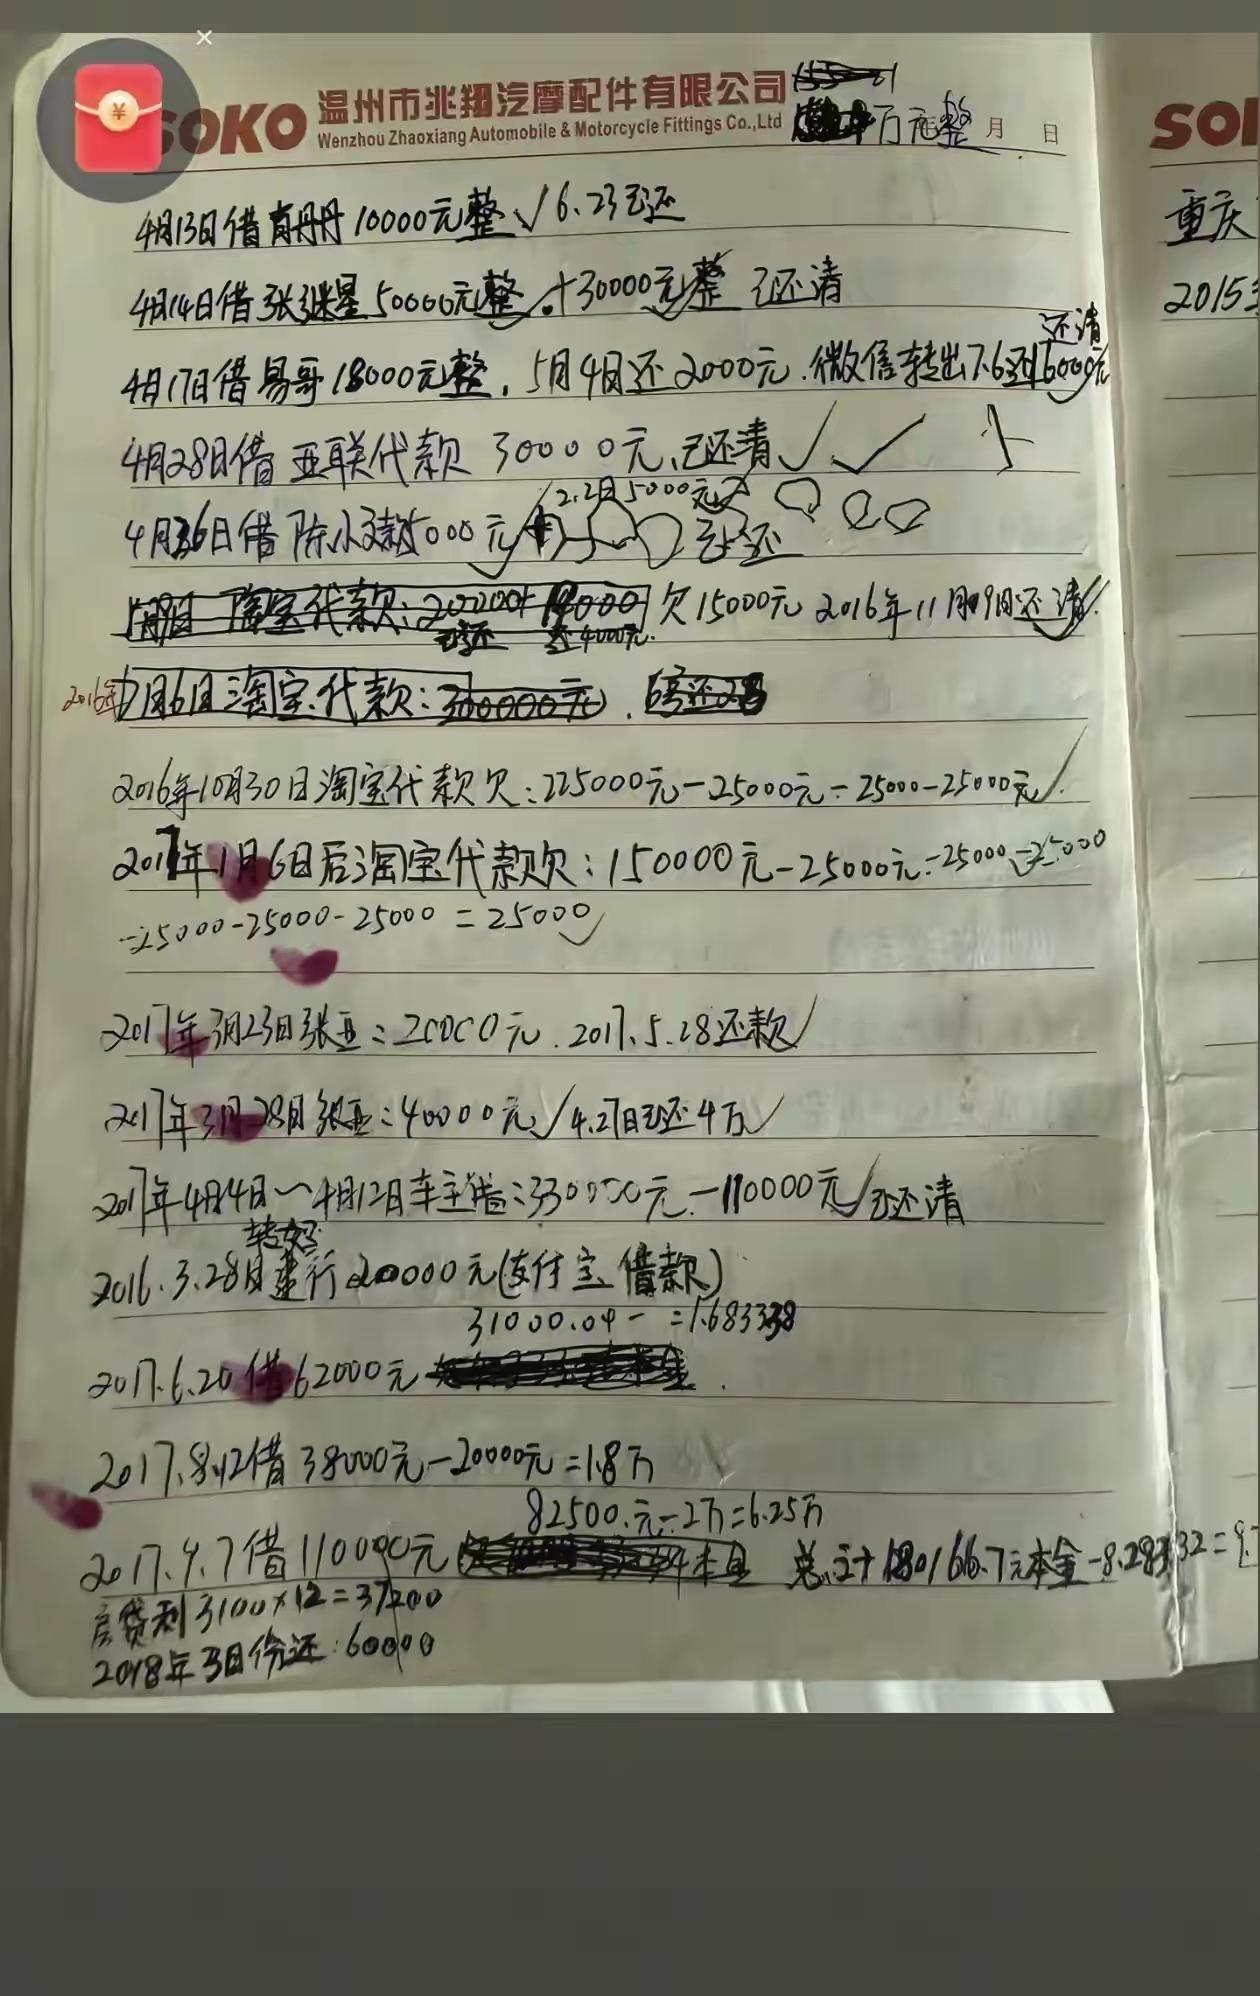 SOKO 温州市兆翔汽摩配件有限公司
Wenzhou Zhaoxiang Automobile & Motorcycle Fittings Co.,Ltd
万元整 月 日
SO
重庆
2015
4月13日借 丹丹 10000元整 √ 6.23已还
4月14日借 张继星 50000元整 + 30000元整 已还清
还清
4月17日借易哥 18000元整, 5月4日还2000元.微信转出 7.6还16000元
4月28日借 亚联代款 30000元,已还清 √ √
2.2日5000元
4月26日借 陈小 5000元 已还
淘宝代款: 20000+ 欠15000元 2016年11月09日还清
已还 4000元.
2016年7月6日淘宝代款: 300000元.
2016年10月30日淘宝代款欠:225000元-25000元-25000-25000元 √
2017年1月6日后淘宝代款欠:150000元-25000元-25000-25000
-25000-25000-25000 = 25000 √
2017年3月23日张亚:20000元. 2017.5.28还款 √
2017年3月28日张亚:40000元 √ 4.27日已还4万 √
2017年4月4日~4月12日车主借:330000元-110000元 √ 已还清
2016.3.28日建行20000元(支付宝借款)
31000.04- =1.683338
2017.6.20借62000元
2017.8.12借38000元-20000元=1.8万
82500.元-2万=6.25万
2017.9.7借110000元 本息 总计+180166.7元本金-8.28332=
房贷利3100×12=37200
2018年3月份还:60000